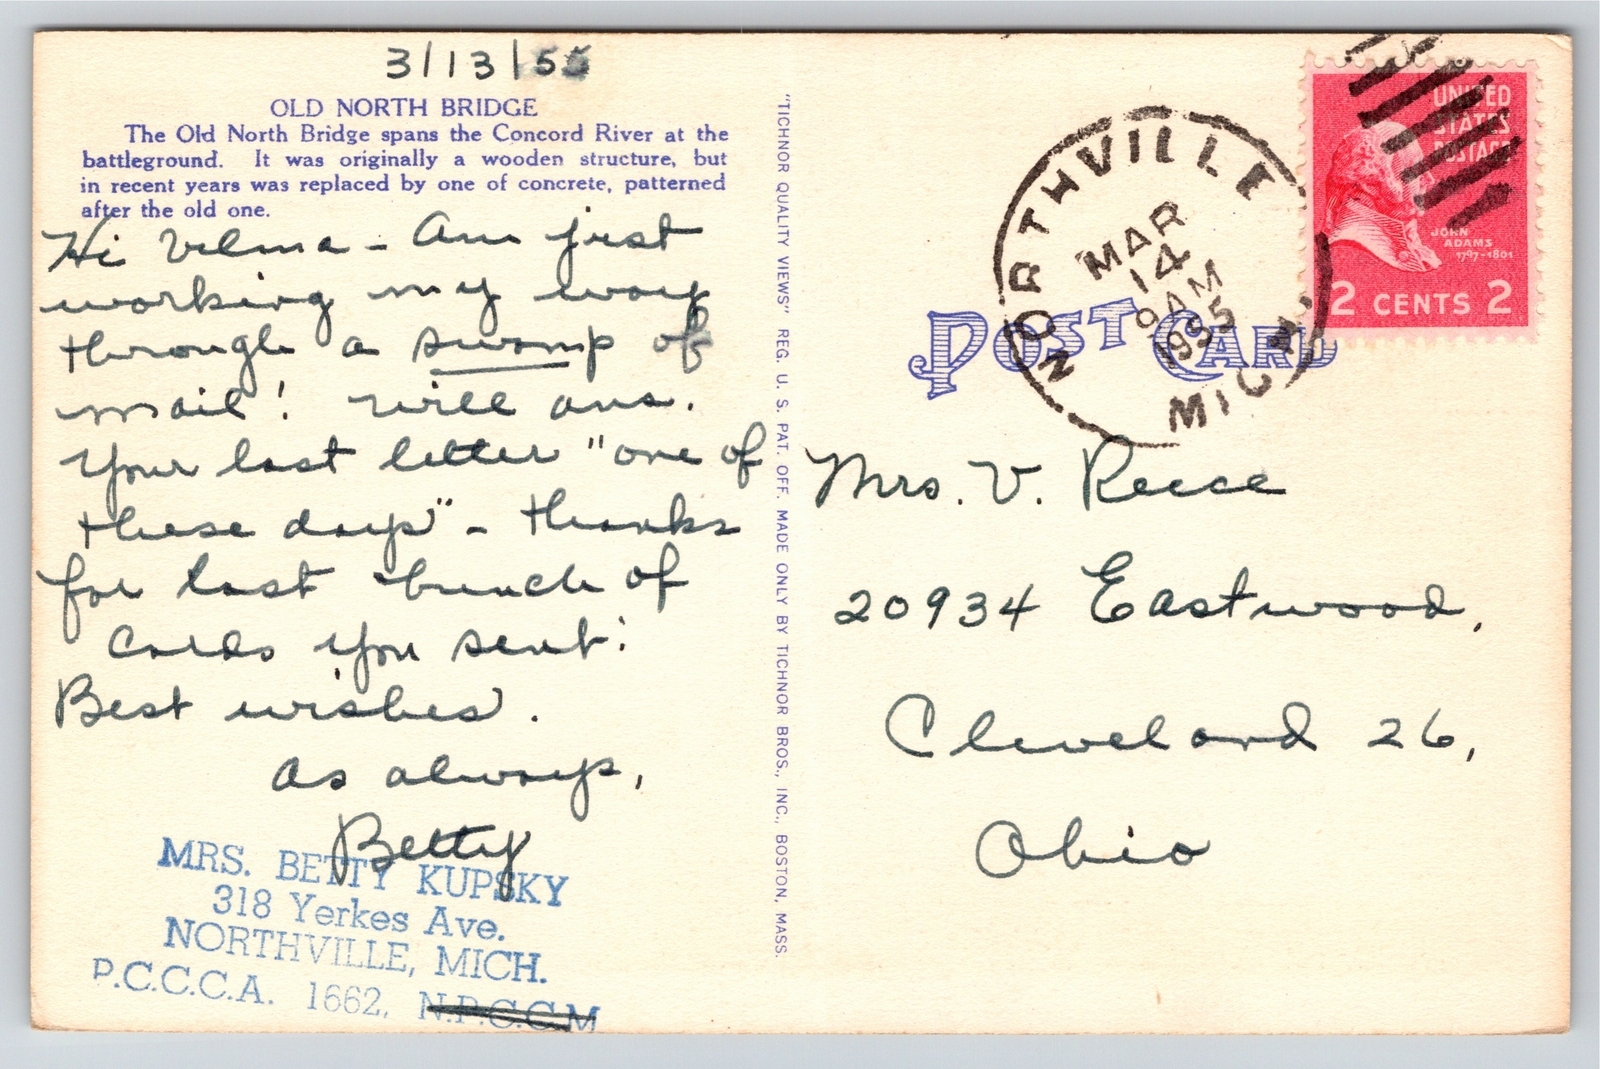 3/13/55
OLD NORTH BRIDGE
The Old North Bridge spans the Concord River at the
battleground. It was originally a wooden structure, but
in recent years was replaced by one of concrete, patterned
after the old one.
Hi Velma - Am just
working my way
through a swamp of
mail! Will ans.
your last letter "one of
these days" - thanks
for last bunch of
cards you sent!
Best wishes.
As always,
Betty
MRS. BETTY KUPSKY
318 Yerkes Ave.
NORTHVILLE, MICH.
P.C.C.C.A. 1662, N.P.C.C.M
"TICHNOR QUALITY VIEWS" REG. U. S. PAT. OFF. MADE ONLY BY TICHNOR BROS., INC., BOSTON, MASS.
NORTHVILLE
MAR
14
9 AM
1955
MICH.
UNITED
STATES
POSTAGE
JOHN
ADAMS
1797-1801
2 CENTS 2
POST CARD
Mrs. V. Reece
20934 Eastwood,
Cleveland 26,
Ohio